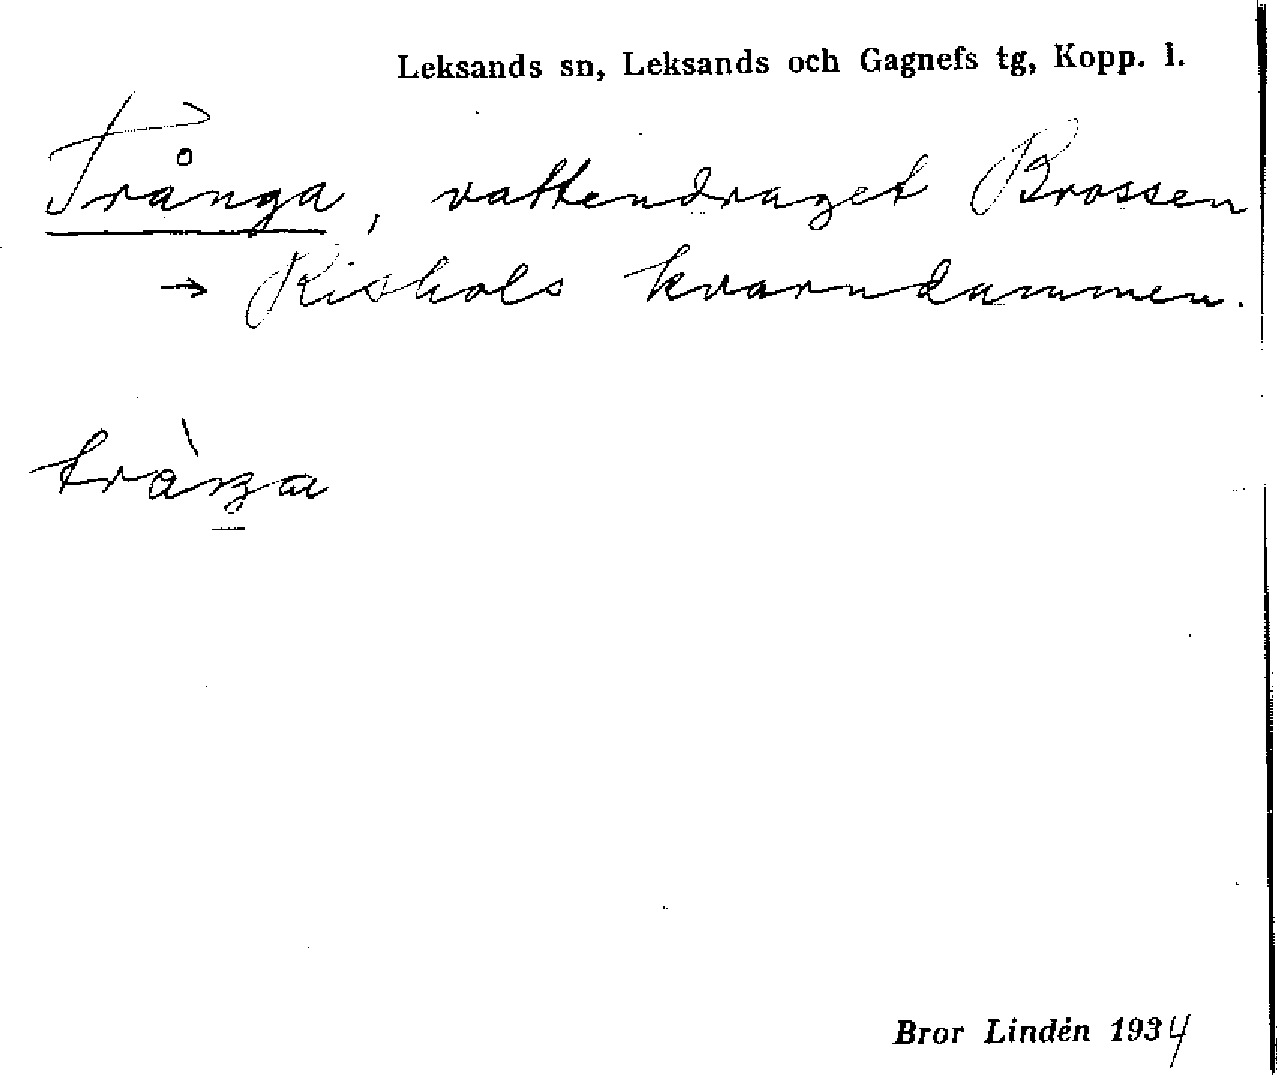 Leksands sn, Leksands och Gagnefs tg, Kopp. l.
Trånga, vattendraget Brossen
→ Rishols kvarndammen.
tràŋa
Bror Lindén 1934